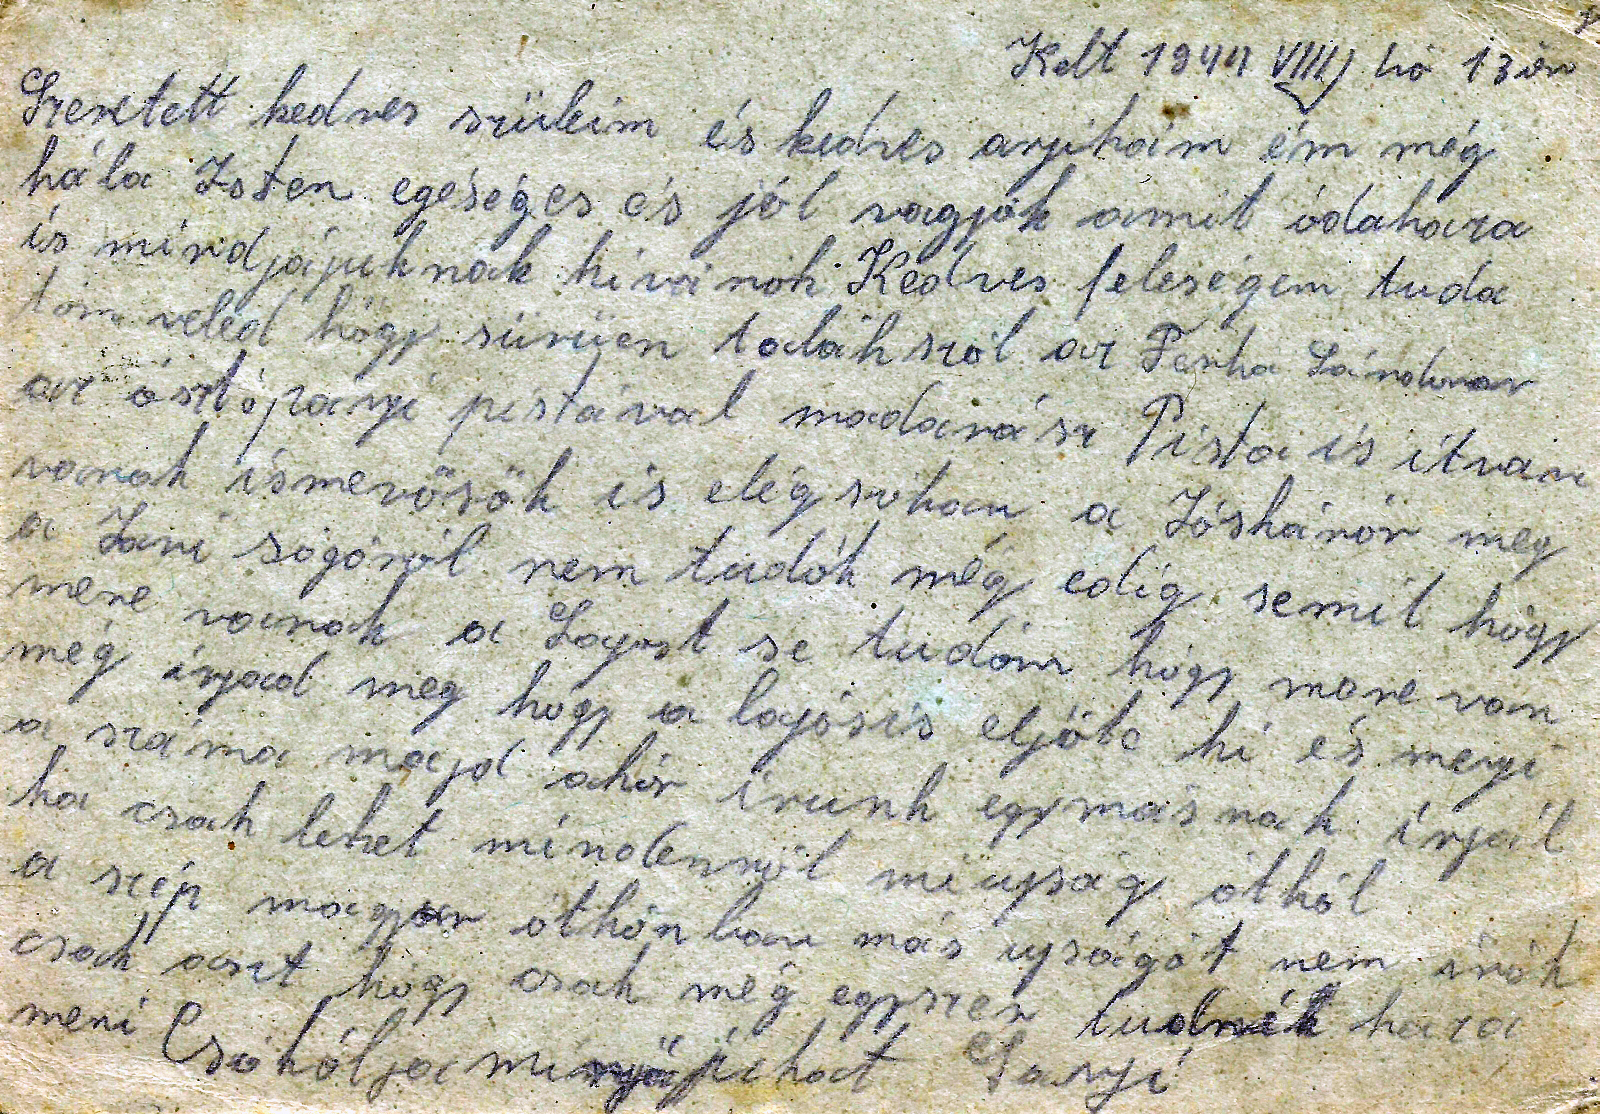 Kelt 1944 VIII hó 13 án
Szeretett kedves szüleim és kedves anyikám ém még
hála Isten egeséges és jól vagyok amit ódahaza
is míndjájuknak kívánok Kedves feleségem tuda
tom veled hógy sürüen talákszól az Sándorar
az ósztópányi pistával madarász Pista is ítvan
vanak ísmerősök is elég sokan a Jóskáról meg
a Jani sógóról nem tudók még edig semit hógy
mere vanak a Lajost se tudóm hógy mere van
még írjad meg hogy a lajósis eljöte ki és menyi
a száma majd akór írunk egymásnak írjál
ha csak lehet míndenröl mi ujság ótból
a szép magyar ótthónban más ujságót nem írók
csak aszt hógy csak még egyszer tudnék haza
meni Csókólja Sanyi